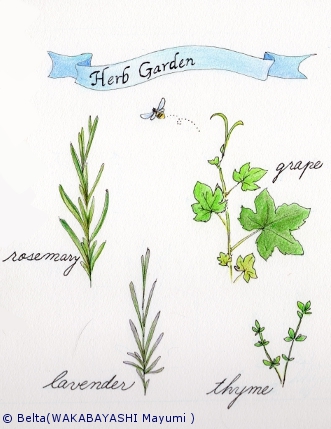 Herb Garden
grape
rosemary
lavender
thyme
© Belta(WAKABAYASHI Mayumi )